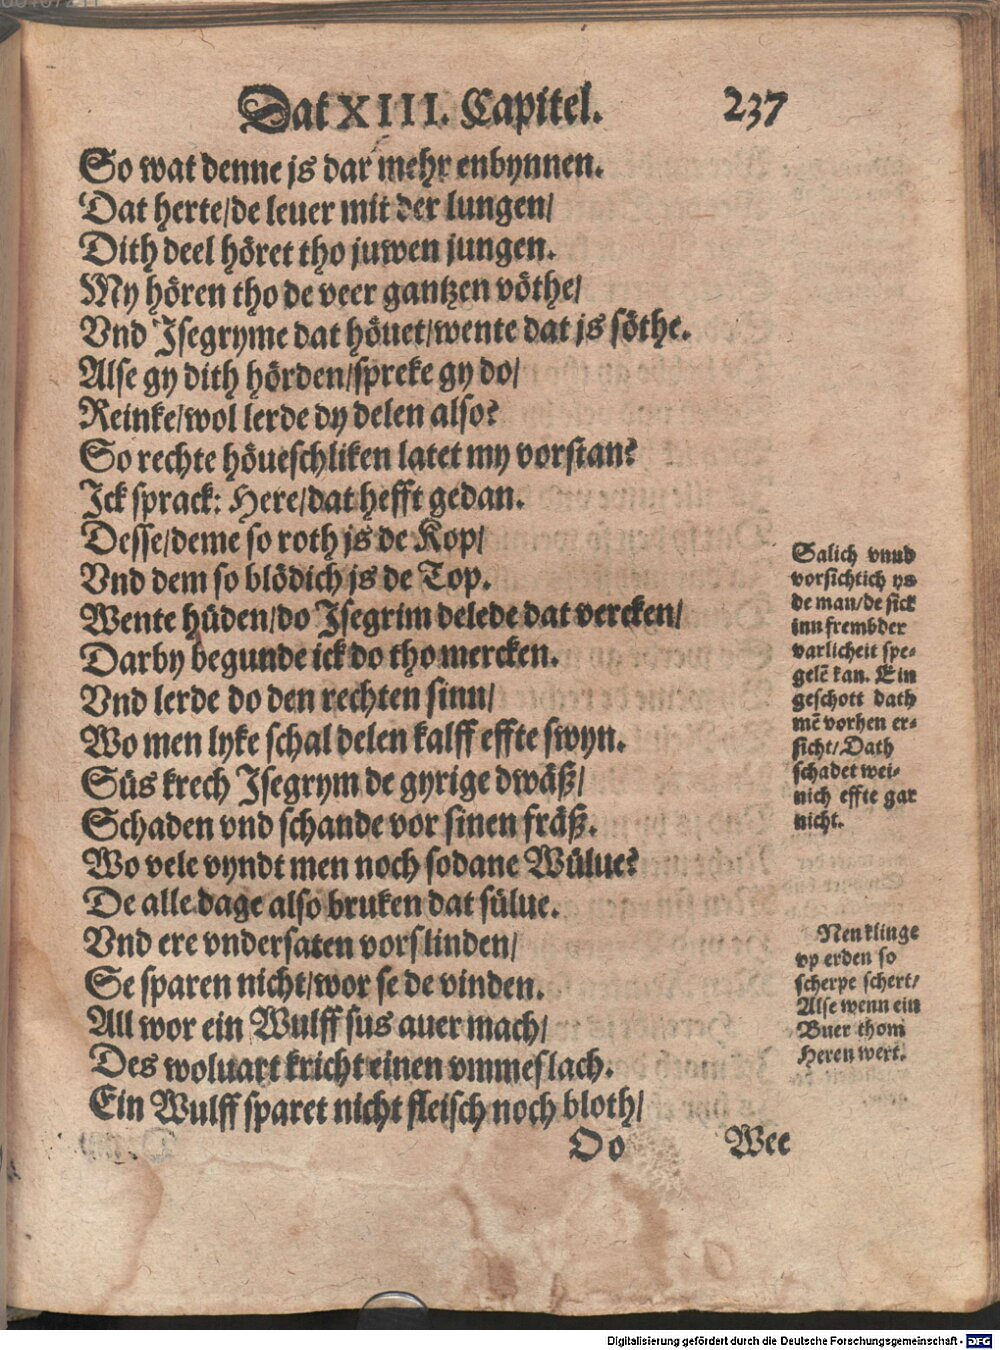 Dat XIII. Capitel. 237
So wat denne js dar mehr enbynnen.
Dat herte/de leuer mit der lungen/
Dith deel höret tho juwen jungen.
My hören tho de veer gantzen vöthe/
Vnd Jsegryme dat höuet/wente dat js söthe.
Alse gy dith hörden/spreke gy do/
Reinke/wol lerde dy delen also?
So rechte höueschliken latet my vorstan?
Jck sprack: Here/dat hefft gedan.
Desse/deme so roth js de Kop/
Vnd dem so blödich js de Top.
Wente hüden/do Jsegrim delede dat vercken/
Darby begunde ick do tho mercken.
Vnd lerde do den rechten sinn/
Wo men lyke schal delen kalff effte swyn.
Süs krech Jsegrym de gyrige dwäß/
Schaden vnd schande vor sinen fräß.
Wo vele vyndt men noch sodane Wülue?
De alle dage also bruken dat sülue.
Vnd ere vndersaten vorslinden/
Se sparen nicht/wor se de vinden.
All wor ein Wulff sus auer mach/
Des woluart kricht einen vmmeslach.
Ein Wulff sparet nicht fleisch noch bloth/
Oo Wee
Salich vnnd
vorsichtich ys
de man/de sick
inn frembder
varlicheit spe-
gelē kan. Ein
geschott dath
mē vorhen er-
sicht/Dath
schadet wei-
nich effte gar
nicht.
Nen klinge
vp erden so
scherpe schert/
Alse wenn ein
Buer thom
Heren wert.
Digitalisierung gefördert durch die Deutsche Forschungsgemeinschaft - DFG